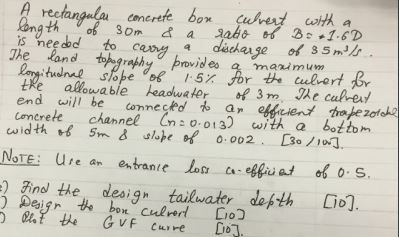 A rectangular concrete box culvert with a
length of 30m & a ratio of B = 1.6D
is needed to carry a discharge of 35 m³/s.
The land topography provides a maximum
longitudinal slope of 1.5% for the culvert for
the allowable headwater of 3m. The culvert
end will be connected to an efficient trapezoidal
concrete channel (n=0.013) with a bottom
width of 5m & slope of 0.002. [30/100].
NOTE: Use an entrance loss co-efficient of 0.5.
) Find the design tailwater depth [10].
) Design the box culvert [10]
) Plot the GVF curve [10].